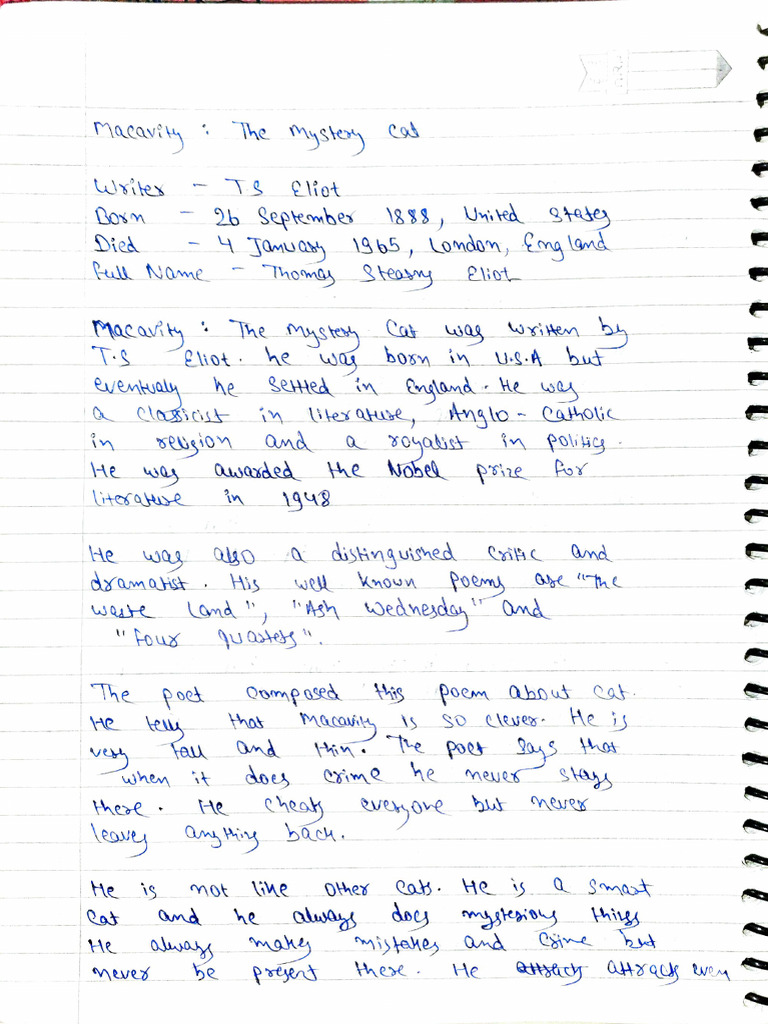 Macavity : The Mystery Cat
Writer - T S Eliot
Born - 26 September 1888, United States
Died - 4 January 1965, London, England
Full Name - Thomas Stearns Eliot
Macavity : The Mystery Cat was written by
T.S Eliot. he was born in U.S.A but
eventualy he settled in England. He was
a classicist in literature, Anglo-Catholic
in religion and a royalist in politics.
He was awarded the Nobel prize for
literature in 1948
He was also a distinguished critic and
dramatist. His well known poems are "The
waste Land", "Ash Wednesday" and
"Four Quartets".
The poet composed this poem about cat.
He tells that Macavity is so clever. He is
very tall and thin. The poet says that
when it does crime he never stays
there. He cheats everyone but never
leaves anything back.
He is not like other cats. He is a smart
cat and he always does mysterious things
He always makes mistakes and crime but
never be present there. He attracts even